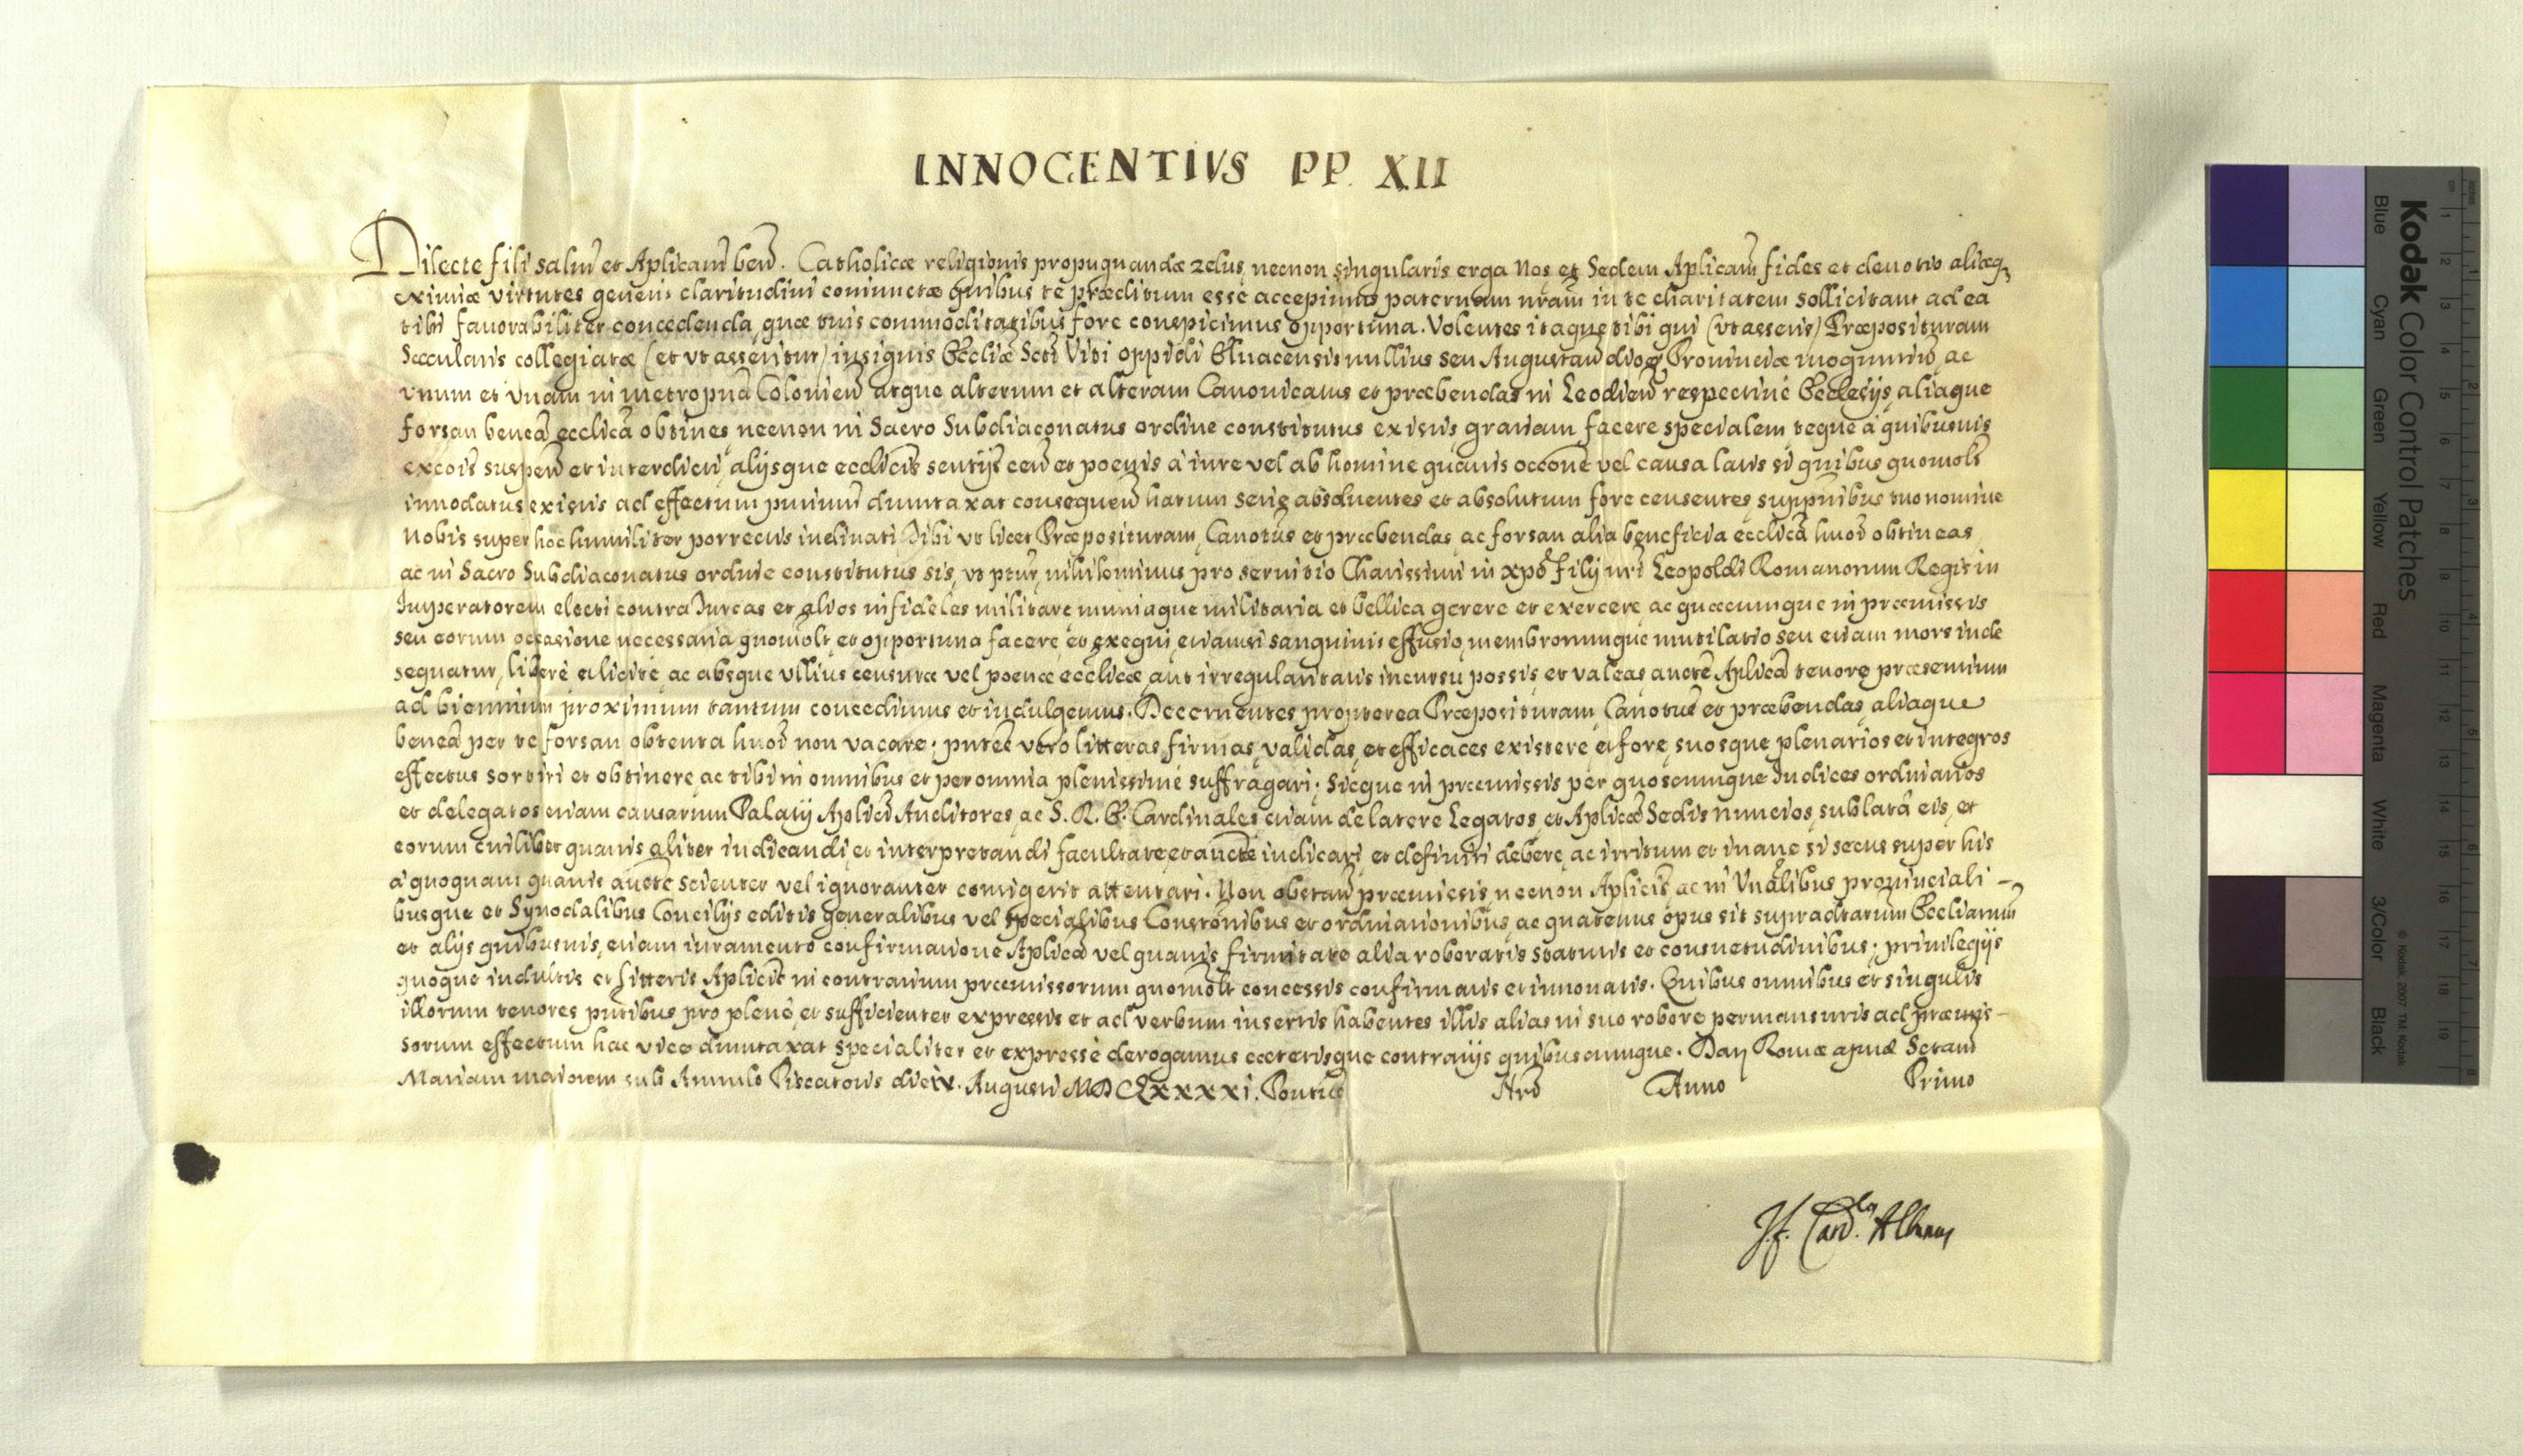 INNOCENTIVS PP. XII
Dilecte fili salm̃ et Aplicam̃ ben̄. Catholicæ religionis propugnandæ zelus, necnon singularis erga Nos et Sedem Aplicam̃ fides et devotio aliæq₃
eximiæ virtutes generis claritudini coniunctæ quibus te præditum esse accepimus paternam nr̃am in te charitatem sollicitant ad ea
tibi favorabiliter concedenda, quæ tuis commoditatibus fore conspicimus opportuna. Volentes itaque tibi qui (vt asseris) Præposituram
Sæcularis collegiatæ (et vt asseritur) insignis Eccliæ Scti Viti oppidi Elvacensis nullius seu Augustan̄ diog̃ Provinciæ moguntin̄, ac
vnum et vnam in metropna Colonien̄ atque alterum et alteram Canonicatus et præbendas in Leodien̄ respectivè Ecclesijs, aliaque
forsan beneã ecclicã obtines necnon in Sacro Subdiaconatus ordine constitutus existis gratiam facere specialem, teque a quibusvis
excois suspen̄ et interdicti, alijsque ecclicis sentijs cen̄ et poenis à iure vel ab homine quavis occone vel causa latis si quibus quomolt
innodatus existis ad effectum pntium dumtaxat consequen̄ harum serie absolventes et absolutum fore censentes, suppnibus tuo nomine
Nobis super hoc humiliter porrectis inclinati, Tibi vt licet Præposituram, Canotus et præbendas, ac forsan alia beneficia ecclicã huoi obtineas,
ac in Sacro Subdiaconatus ordine constitutus sis, vt pfur, nihilominus pro servitio Charissimi in xp̃o Filij nr̃i Leopoldi Romanorum Regis in
Imperatorem electi contra Turcas et alios infideles militare, muniaque militaria et bellica gerere et exercere, ac quæcumque in præmissis
seu eorum occasione necessaria quomolt, et opportuna facere, et exequi, etiamsi sanguinis effusio, membrorumque mutilatio seu etiam mors inde
sequatur, liberè et licitè, ac absque vllius censuræ vel poenæ ecclicæ, aut irregularitatis incursu possis, et valeas, aucte Aplicã tenore præsentium
ad biennium proximum tantum concedimus et indulgemus. Decernentes propterea Præposituram, Canotus et præbendas, aliaque
beneã per te forsan obtenta huoi non vacare; pntes vero litteras firmas, validas, et efficaces existere, et fore, suosque plenarios et integros
effectus sortiri et obtinere, ac tibi in omnibus et per omnia plenissimè suffragari; Sicque in præmissis per quoscumque Iudices ordinarios
et delegatos etiam causarum Palatij Aplici Auditores, ac S. R. E. Cardinales etiam de latere Legatos, et Aplicæ Sedis nuncios, sublatâ eis, et
eorum cuilibet quavis aliter iudicandi, et interpretandi facultate, et aucte iudicari, et definiri debere, ac irritum et inane si secus super his
à quoquam quavis aucte scienter vel ignoranter contigerit attentari. Non obstan̄ præmissis, necnon Aplicis, ac in Vnalibus provinciali-
busque et Synodalibus Concilijs editis generalibus vel specialibus Constonibus et ordinationibus, ac quatenus opus sit supradtarum Eccliarum
et alijs quibusvis, etiam iuramento confirmatione Aplicã vel quavis firmitate alia roboratis statutis et consuetudinibus; privilegijs
quoque indultis et litteris Aplicis in contrarium præmissorum quomolt concessis confirmatis et innovatis. Quibus omnibus et singulis
illorum tenores pntibus pro plenè, et sufficienter expressis et ad verbum insertis habentes illis alias in suo robore permansuris ad præmis-
sorum effectum hac vice dumtaxat specialiter et expressè derogamus cæterisque contrarijs quibuscumque. Dat₃ Romæ apud Sctam
Mariam maiorem sub Annulo Piscatoris die ix. Augusti MDCLXXXXI. Pontus Nri Anno Primo
J. F. Card.lis Albanus
Kodak Color Control Patches
Blue Cyan Green Yellow Red Magenta White 3/Color Black
© Kodak, 2007 TM: Kodak
cm 1 2 3 4 5 6 7 8 9 10 11 12 13 14 15 16 17 18 19
inches 1 2 3 4 5 6 7 8